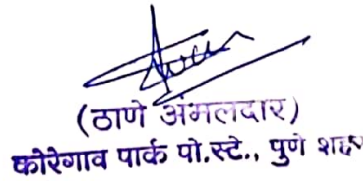 (ठाणे अंमलदार)
कोरेगाव पार्क पो.स्टे., पुणे शहर